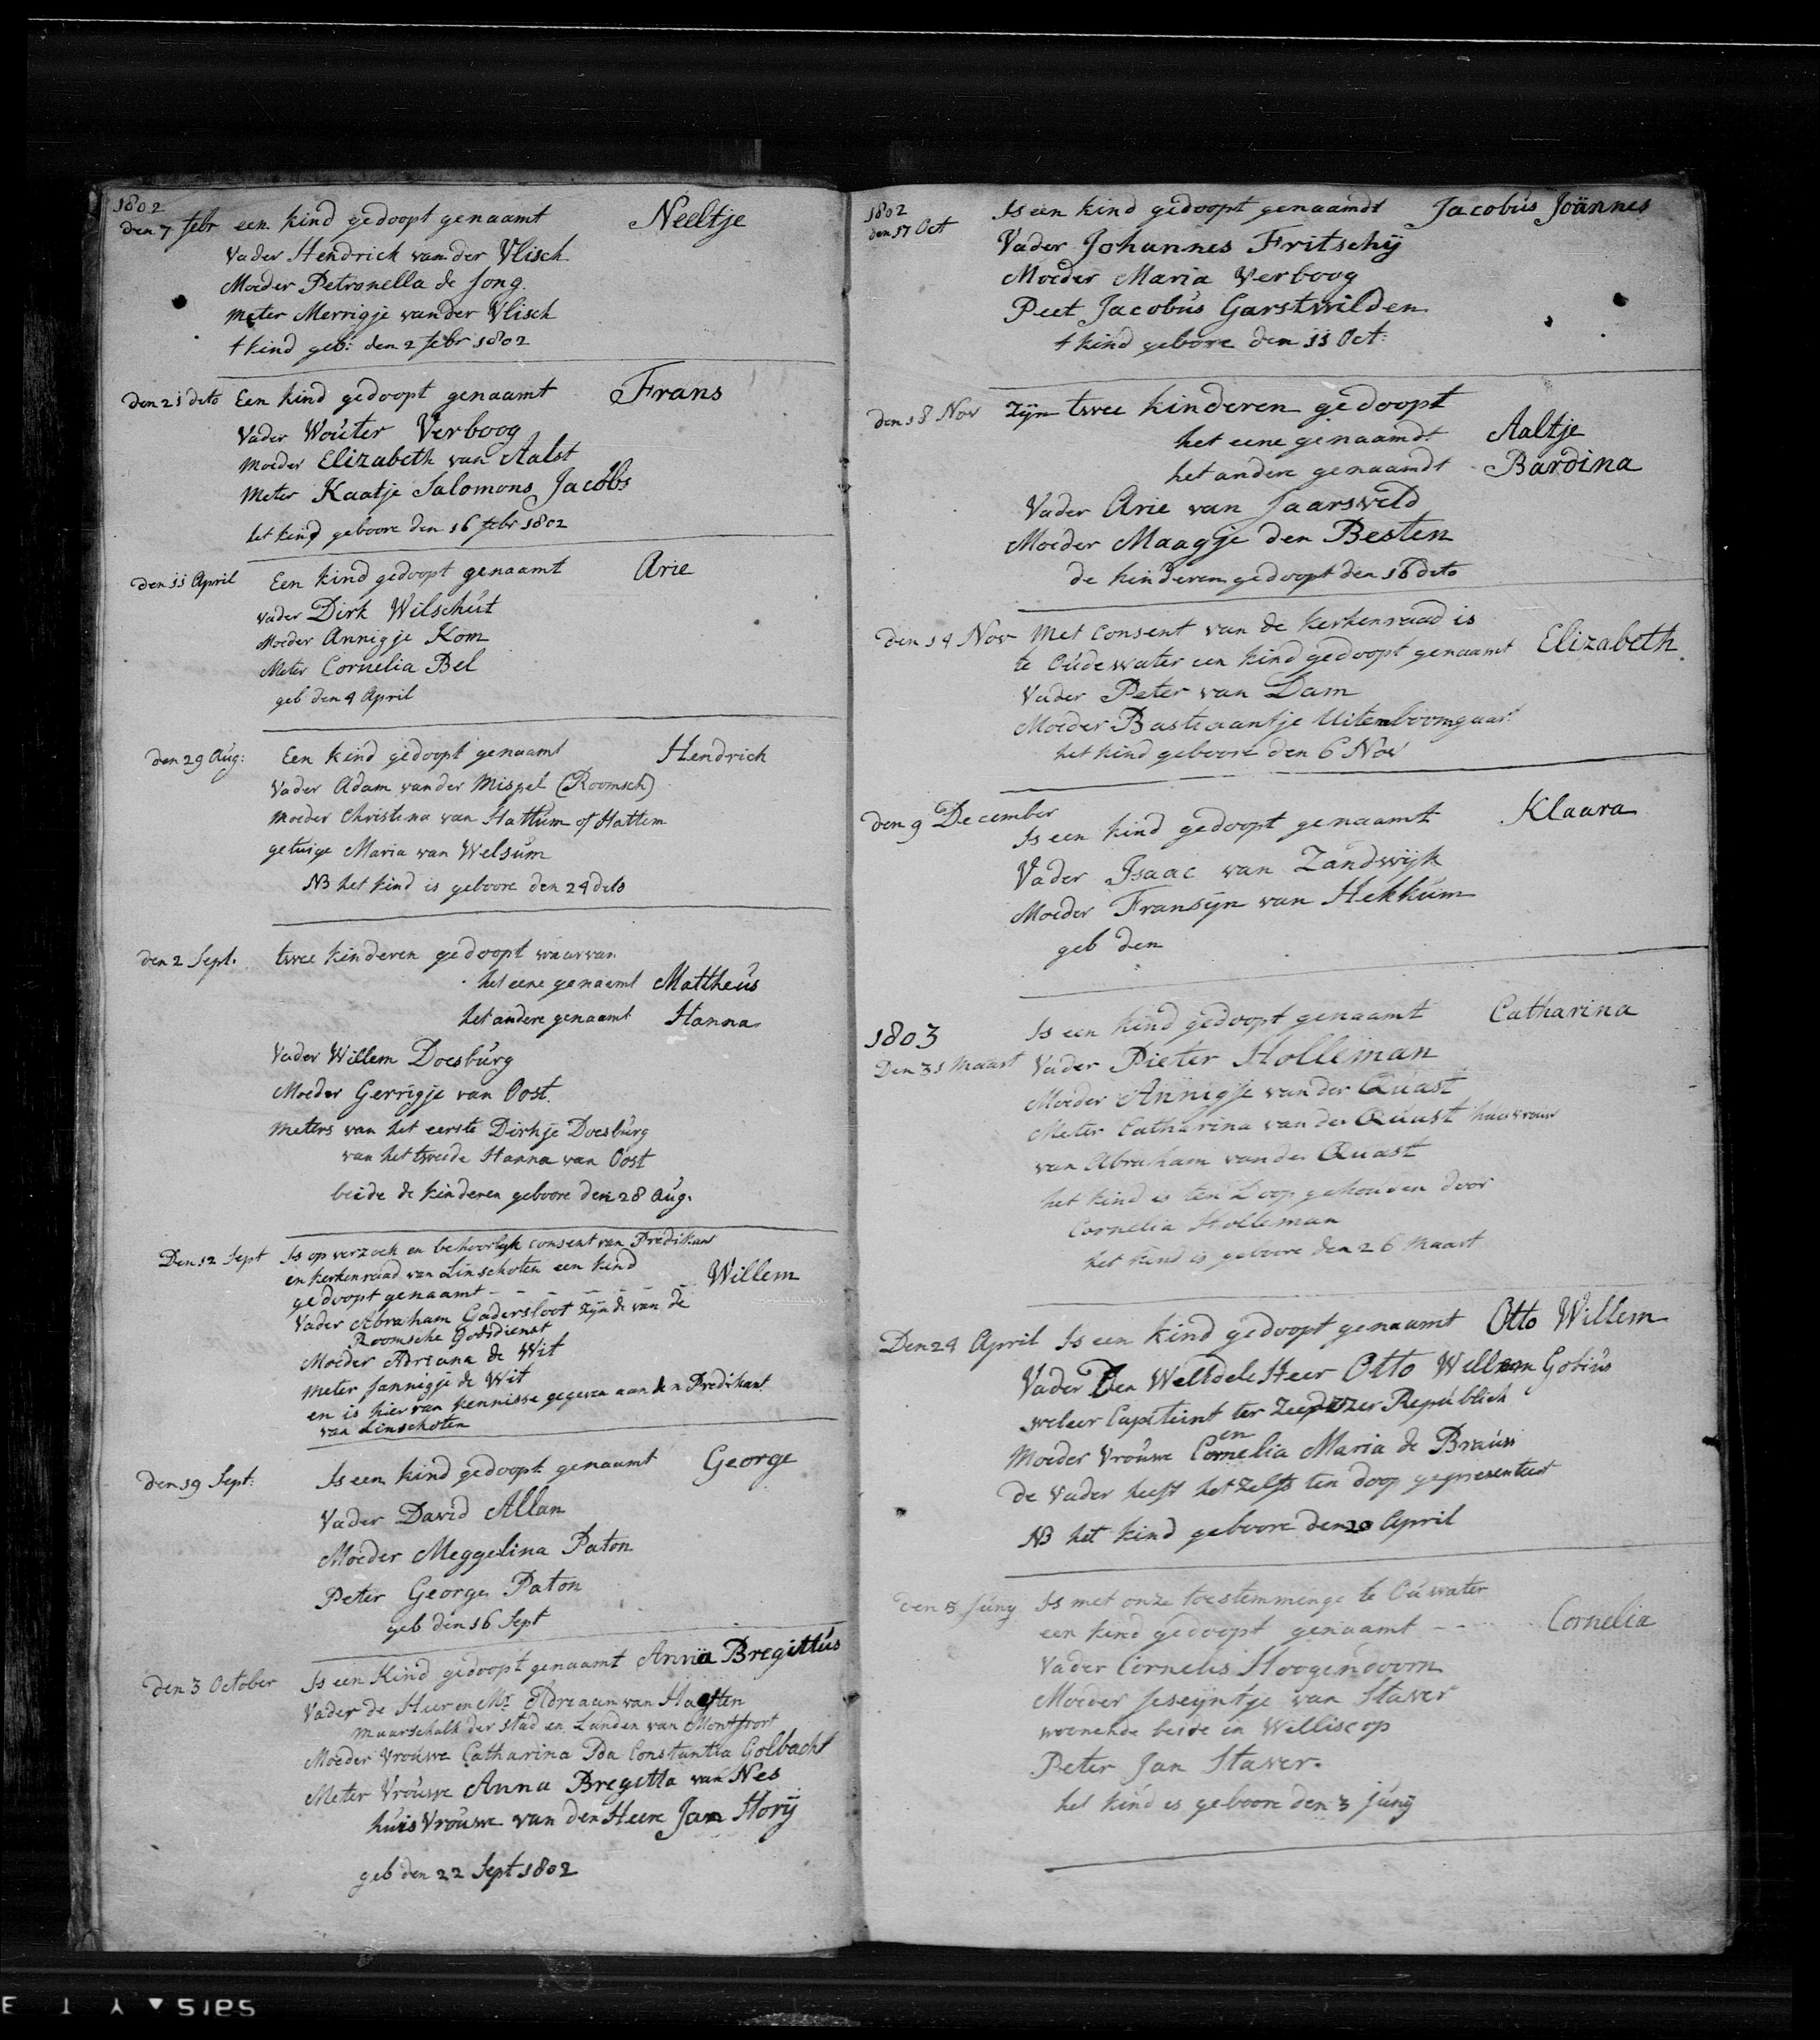 1802
den 7 febr een kind gedoopt genaamt Neeltje
Vader Hendrick van der Vlisch
Moeder Petronella de Jong
meter Merrigje van der Vlisch
t kind geb: den 2 febr 1802
den 21 dito Een kind gedoopt genaamt Frans
Vader Wouter Verboog
moeder Elizabeth van Aalst
meter Kaatje Salomons Jacobs
het kind geboore den 16 febr 1802
den 11 April Een kind gedoopt genaamt Arie
vader Dirk Wilschut
Moeder Annigje Kom
Meter Cornelia Bel
geb den 4 April
den 29 Aug: Een kind gedoopt genaamt Hendrich
Vader Adam van der Mispel (Roomsch)
moeder Christina van Hattum of Hattem
getuige Maria van Welsum
NB het kind is geboore den 24 dito
den 2 Sept. twee kinderen gedoopt waarvan
het eene genaamt Mattheus
het andere genaamt Hanna
Vader Willem Doesburg
Moeder Gerrigje van Oost
meters van het eerste Dirkje Doesburg
van het tweede Hanna van Oost
beide de kinderen geboore den 28 Aug.
Den 12 Sept Is op verzoek en behoorlyk consent van Predikant
en kerkenraad van Linschoten een kind
gedoopt genaamt - - - - - Willem
Vader Abraham Gadersloot zijnde van de
Roomsche Godsdienst
Moeder Adriana de Wit
meter Jannigje de Wit
en is hier van kennisse gegeven aan den Predikant
van Linschoten
den 19 Sept: Is een kind gedoopt genaamt George
Vader David Allan
Moeder Meggelina Paton
Peter George Paton
geb den 16 Sept
den 3 October Is een Kind gedoopt genaamt Anna Bregittus
Vader de Heer en Mr. Adreaan van Haeften
maarschalk der stad en Landen van Montfoort
Moeder Vrouwe Catharina Ida Constantia Golbacht
Meter Vrouwe Anna Bregitta van Nes
huis Vrouwe van den Heere Jan Horij
geb den 22 Sept 1802
1802
den 17 Oct Is een kind gedoopt genaamdt Jacobus Joännes
Vader Johannes Fritschij
Moeder Maria Verboog
Peet Jacobus Garstwilden
t kind geboore den 11 Oct:
den 18 Nov zijn twee kinderen gedoopt
het eene genaamdt Aaltje
het andere genaamdt Bardina
Vader Arie van Jaarsveld
Moeder Maagje den Besten
de kinderen gedoopt den 16 dito
den 14 Nov met consent van de kerkenraad is
te Oudewater een kind gedoopt genaamt Elizabeth
Vader Peter van Dam
Moeder Bastiaantje Uitenboomgaart
het kind geboore den 6 Nov
den 9 December
Is een kind gedoopt genaamt Klaara
Vader Isaac van Zandwijk
Moeder Fransijn van Hekkum
geb den
1803
Is een kind gedoopt genaamt Catharina
Den 31 maart Vader Pieter Holleman
Moeder Annigje van der Quast
Meter Catharina van der Quast huisvrouw
van Abraham van der Quast
het kind is ten Doop gehouden door
Cornelia Holleman
het kind is geboore den 26 Maart
Den 24 April Is een kind gedoopt genaamt Otto Willem
Vader Den WelEdele Heer Otto Willem Gobius
weleer Capiteint ter Zee dezer Republiek
en
Moeder Vrouwe Cornelia Maria de Bruin
de vader heeft het zelfs ten doop gepresenteert
NB het kind geboore den 20 April
den 5 Juny Is met onze toestemminge te Ouwater
een kind gedoopt genaamt - - Cornelia
Vader Cornelis Hoogendoorn
Moeder Jeseijntje van Staver
woonende beide in Williscop
Peter Jan Staver.
het kind is geboore den 3 Junij